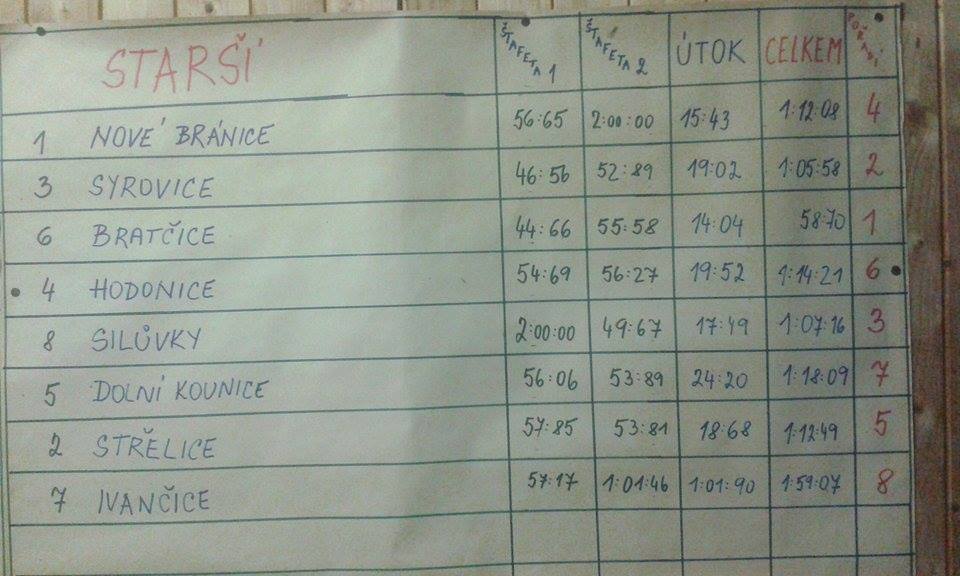 STARŠÍ ŠTAFETA 1 ŠTAFETA 2 ÚTOK CELKEM POŘADÍ
1 NOVÉ BRÁNICE 56:65 2:00:00 15:43 1:12:08 4
3 SYROVICE 46:56 52:89 19:02 1:05:58 2
6 BRATČICE 44:66 55:58 14:04 58:70 1
4 HODONICE 54:69 56:27 19:52 1:14:21 6
8 SILŮVKY 2:00:00 49:67 17:49 1:07:16 3
5 DOLNÍ KOUNICE 56:06 53:89 24:20 1:18:09 7
2 STŘĚLICE 57:85 53:81 18:68 1:12:49 5
7 IVANČICE 57:17 1:01:46 1:01:90 1:59:07 8